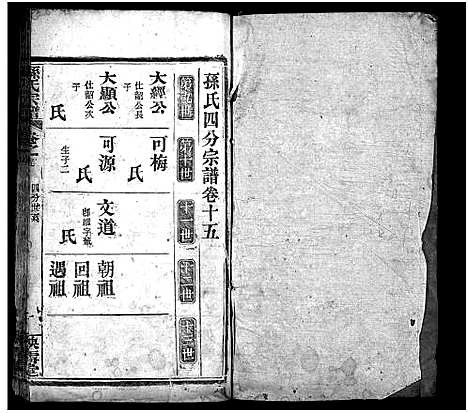 孫氏四分宗譜卷十五
第九世
第十世
十一世
十二世
十三世
大經公
仕韶公長
子
大顯公
仕韶公次
子
氏
可梅
氏
可源
氏
生子二
文道
氏
朝祖
回祖
遇祖
孫氏宗譜
四分世系
映雪堂